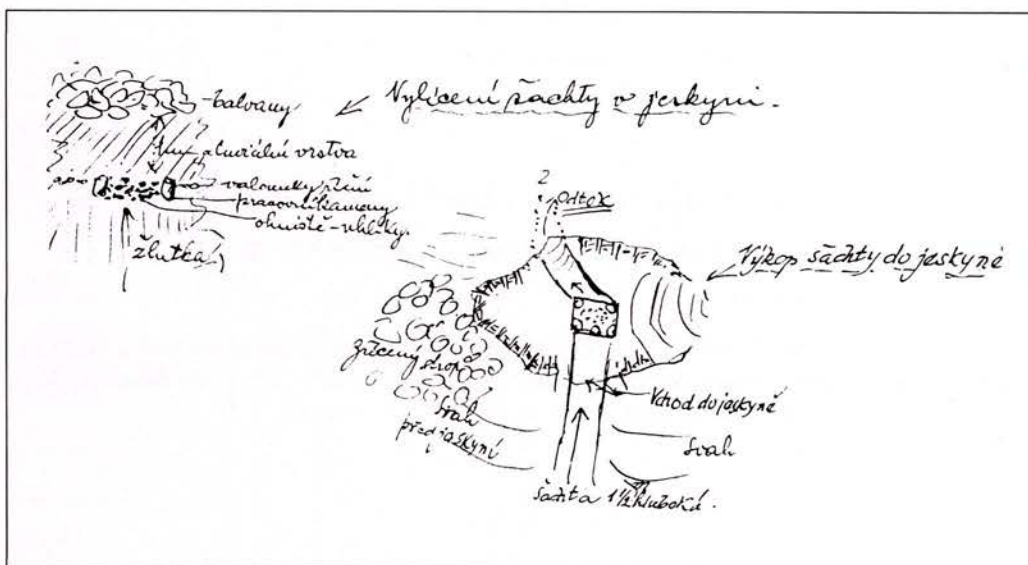 Vylíčení šachty v jeskyni.
-balvany
1m aluviální vrstva
valounky říční
pracovní kameny
ohniště-uhlíky.
žlutka
2
Odtok
Výkop šachty do jeskyně
zřícený strop
Svah
před jaskyní
Vchod do jeskyně
Svah
Šachta 1½ hluboká.